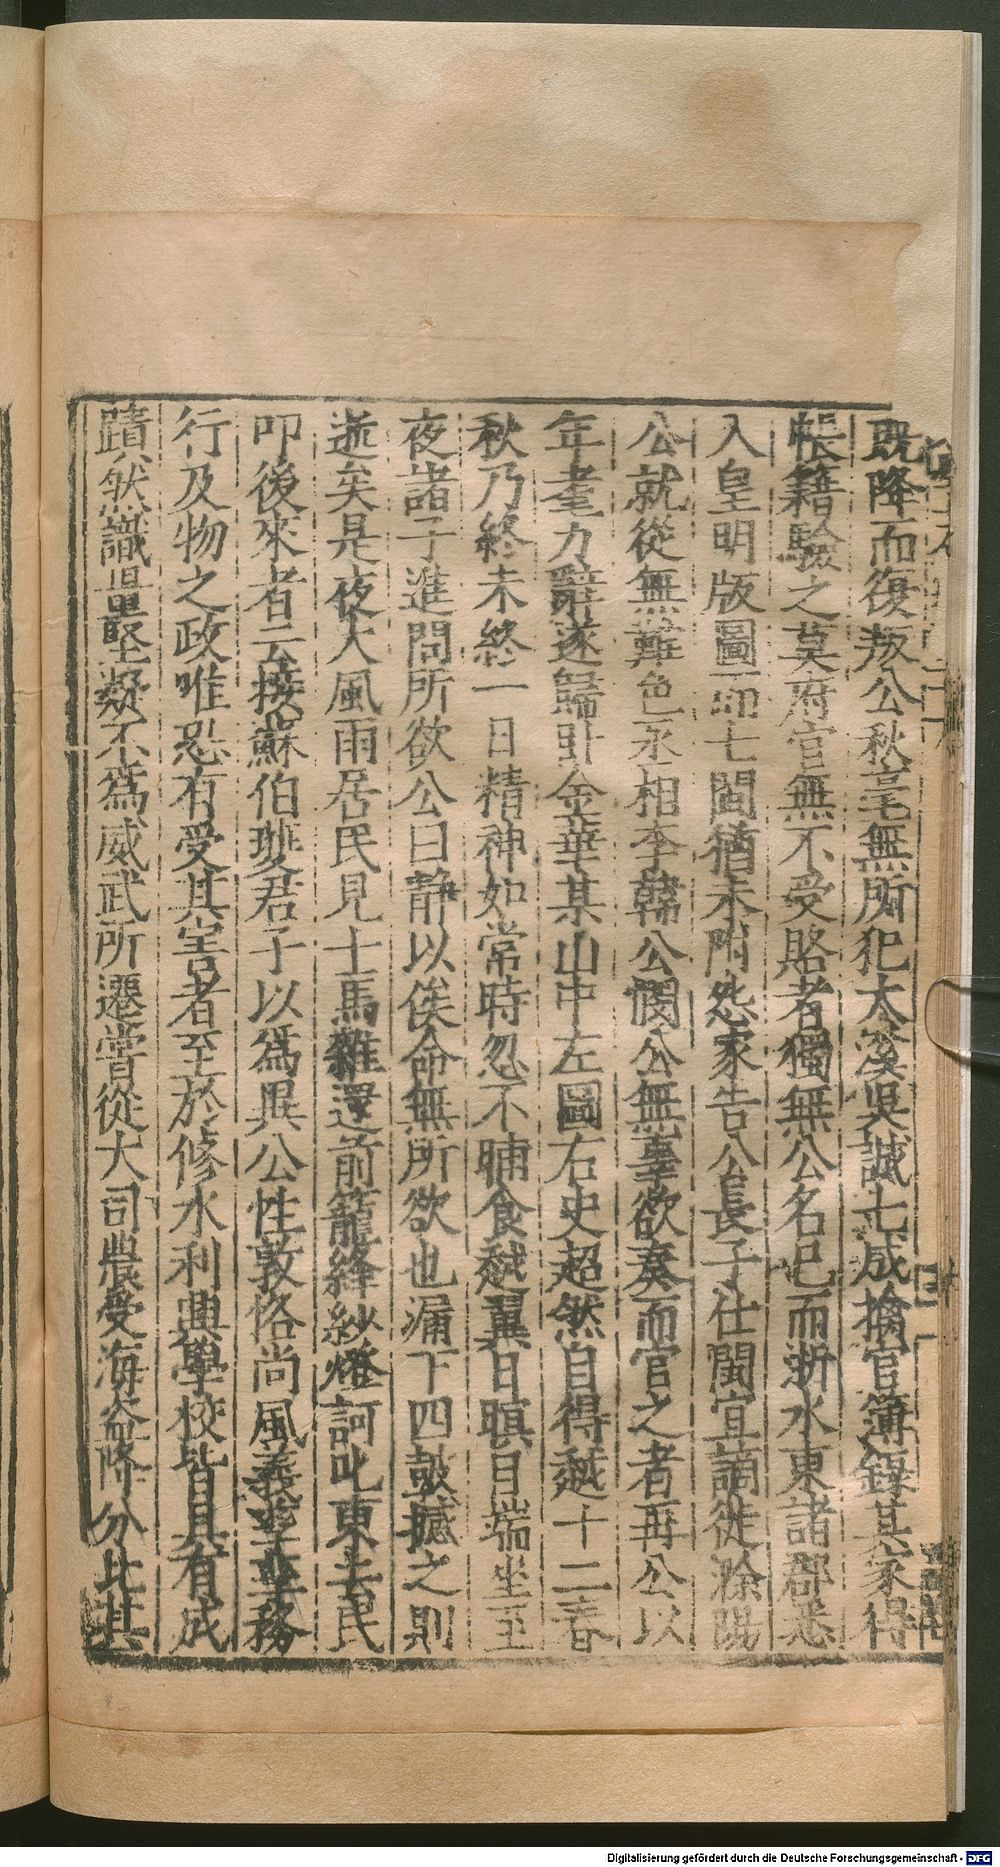 既降而復叛公秋毫無所犯太溪吳誠七成擒官簿錄其家得
帳籍驗之莫府官無不受賂者獨無公名已而浙水東諸郡悉
入皇明版圖而七閩猶未附怨家告公長子仕閩宜謫徙滁陽
公就從無難色丞相李韓公憫公無辜欲奏而官之者再公以
年耄力辭遂歸臥金華某山中左圖右史超然自得越十二春
秋乃終未終一日精神如常時忽不晡食越翼日瞑目端坐至
夜諸子進問所欲公曰靜以俟命無所欲也漏下四鼓撼之則
逝矣是夜大風雨居民見士馬雜還前籠絳紗燈訶叱東去民
叩後來者云接蘇伯璲君子以爲異公性敦恪尚風義莅事務
行及物之政唯恐有受其害者至於修水利興學校皆具有成
蹟然識量堅凝不爲威武所遷嘗從大司農受海盜降分比其
Digitalisierung gefördert durch die Deutsche Forschungsgemeinschaft - DFG